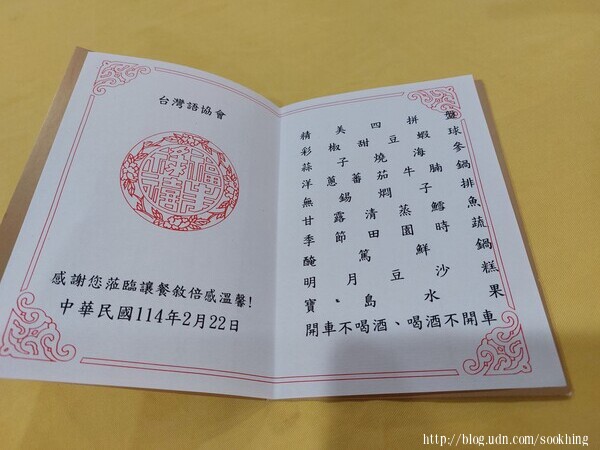 台灣語協會
感謝您蒞臨讓餐敘倍感溫馨!
中華民國114年2月22日
精美四拼盤
彩椒甜豆蝦球
蒜子燒海參
洋蔥蕃茄牛腩鍋
無錫燜子排
甘露清蒸鱈魚
季節田園時蔬
醃篤鮮鍋
明月豆沙糕
寶、島水果
開車不喝酒、喝酒不開車
http://blog.udn.com/sookhing